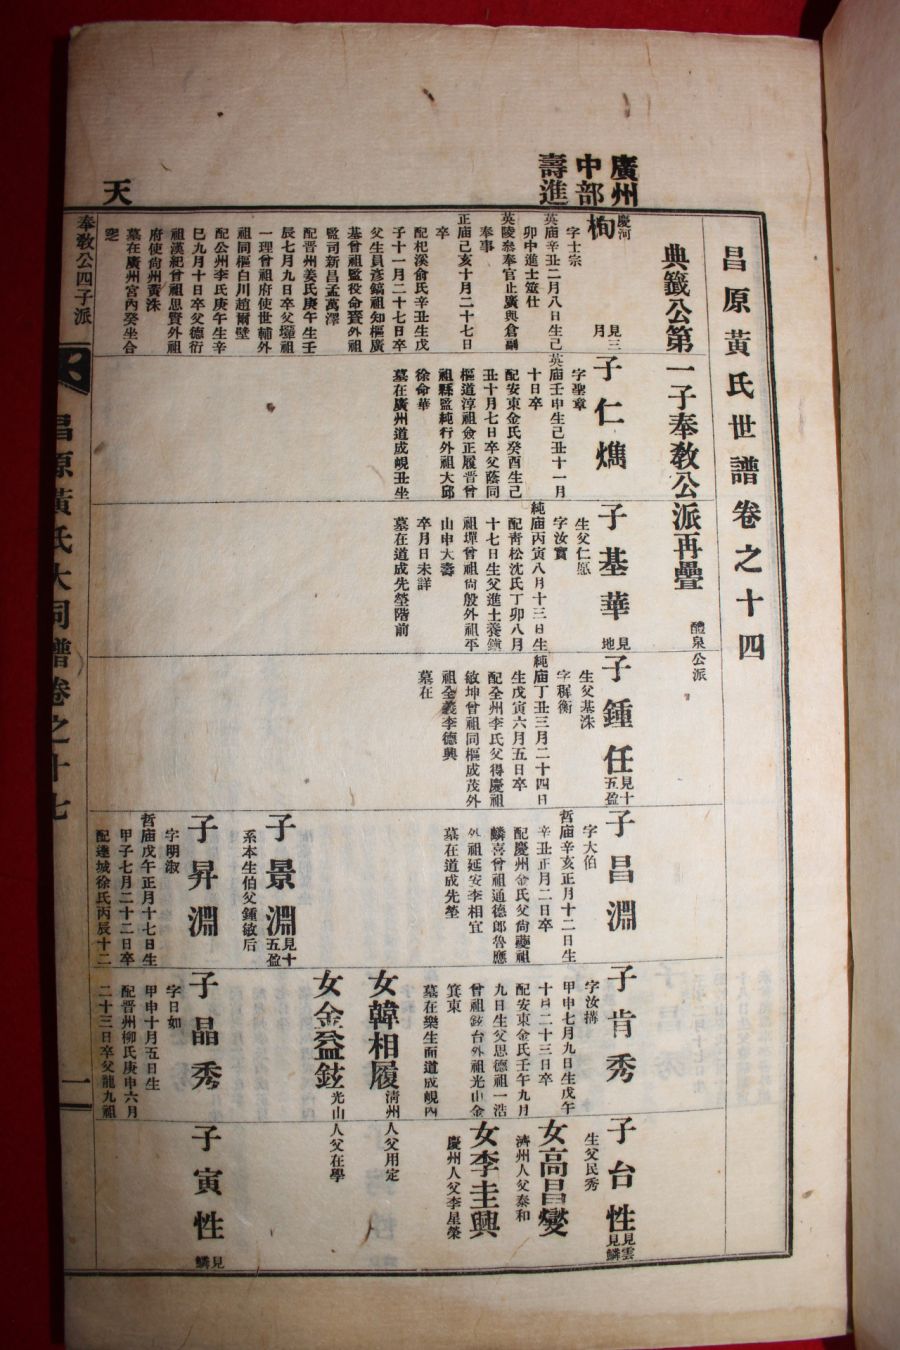 廣州
中部
壽進
天
昌原黃氏世譜卷之十四
典籤公第一子奉教公派再疊
醴泉公派
栒
慶河
見三月
字士宗
英庙辛丑二月八日生己
卯中進士筮仕
英陵參奉官止廣興倉副
奉事
正庙己亥十月二十七日
卒
配杞溪俞氏辛丑生戊
子十一月二十七日卒
父生員彥鎬祖知樞廣
基曾祖監役命賚外祖
監司新昌孟萬澤
配晋州姜氏庚午生壬
辰七月九日卒父壎祖
一理曾祖府使世輔外
祖同樞白川趙爾壁
配公州李氏庚午生辛
巳九月十日卒父德衍
祖漢紀曾祖思賢外祖
府使尙州黃洙
墓在廣州宮內癸坐合
窆
子仁爦
字聖章
英庙壬申生己丑十一月
十日卒
配安東金氏癸酉生己
丑十月七日卒父蔭同
樞道淳祖僉正履晋曾
祖縣監純行外祖大邱
徐命華
墓在廣州道成峴丑坐
子基華
見地
生父仁𤋮
字汝實
純庙丙寅八月十三日生
配靑松沈氏丁卯八月
十七日生父進士養鎭
祖墠曾祖尙殷外祖平
山申大壽
卒月日未詳
墓在道成先塋階前
子鍾任
見十五盈
生父基洙
字穉衡
純庙丁丑三月二十四日
生戊寅六月五日卒
配全州李氏父得慶祖
敏坤曾祖同樞成茂外
祖全義李德興
墓在
子昌淵
字大伯
哲庙辛亥正月十二日生
辛丑正月二日卒
配慶州金氏父尙夔祖
麟喜曾祖通德郎魯應
外祖延安李相宜
墓在道成先塋
子景淵
見十五盈
系本生伯父鍾敏后
子昇淵
字明淑
哲庙戊午正月十七日生
甲子七月二十二日卒
配達城徐氏丙辰十二
子肯秀
字汝搆
甲申七月九日生戊午
十月二十三日卒
配安東金氏壬午九月
九日生父思德祖一浩
曾祖鉉台外祖光山金
箕東
墓在樂生面道成峴內
女韓相履
淸州人父用定
女金益鉉
光山人父在學
子晶秀
字日如
甲申十月五日生
配晋州柳氏庚申六月
二十三日卒父龍九祖
子台性
見雲見鱗
生父民秀
女高昌燮
濟州人父泰和
女李圭興
慶州人父李星榮
子寅性
見鱗
奉敎公四子派
昌原黃氏大同譜卷之十七
一